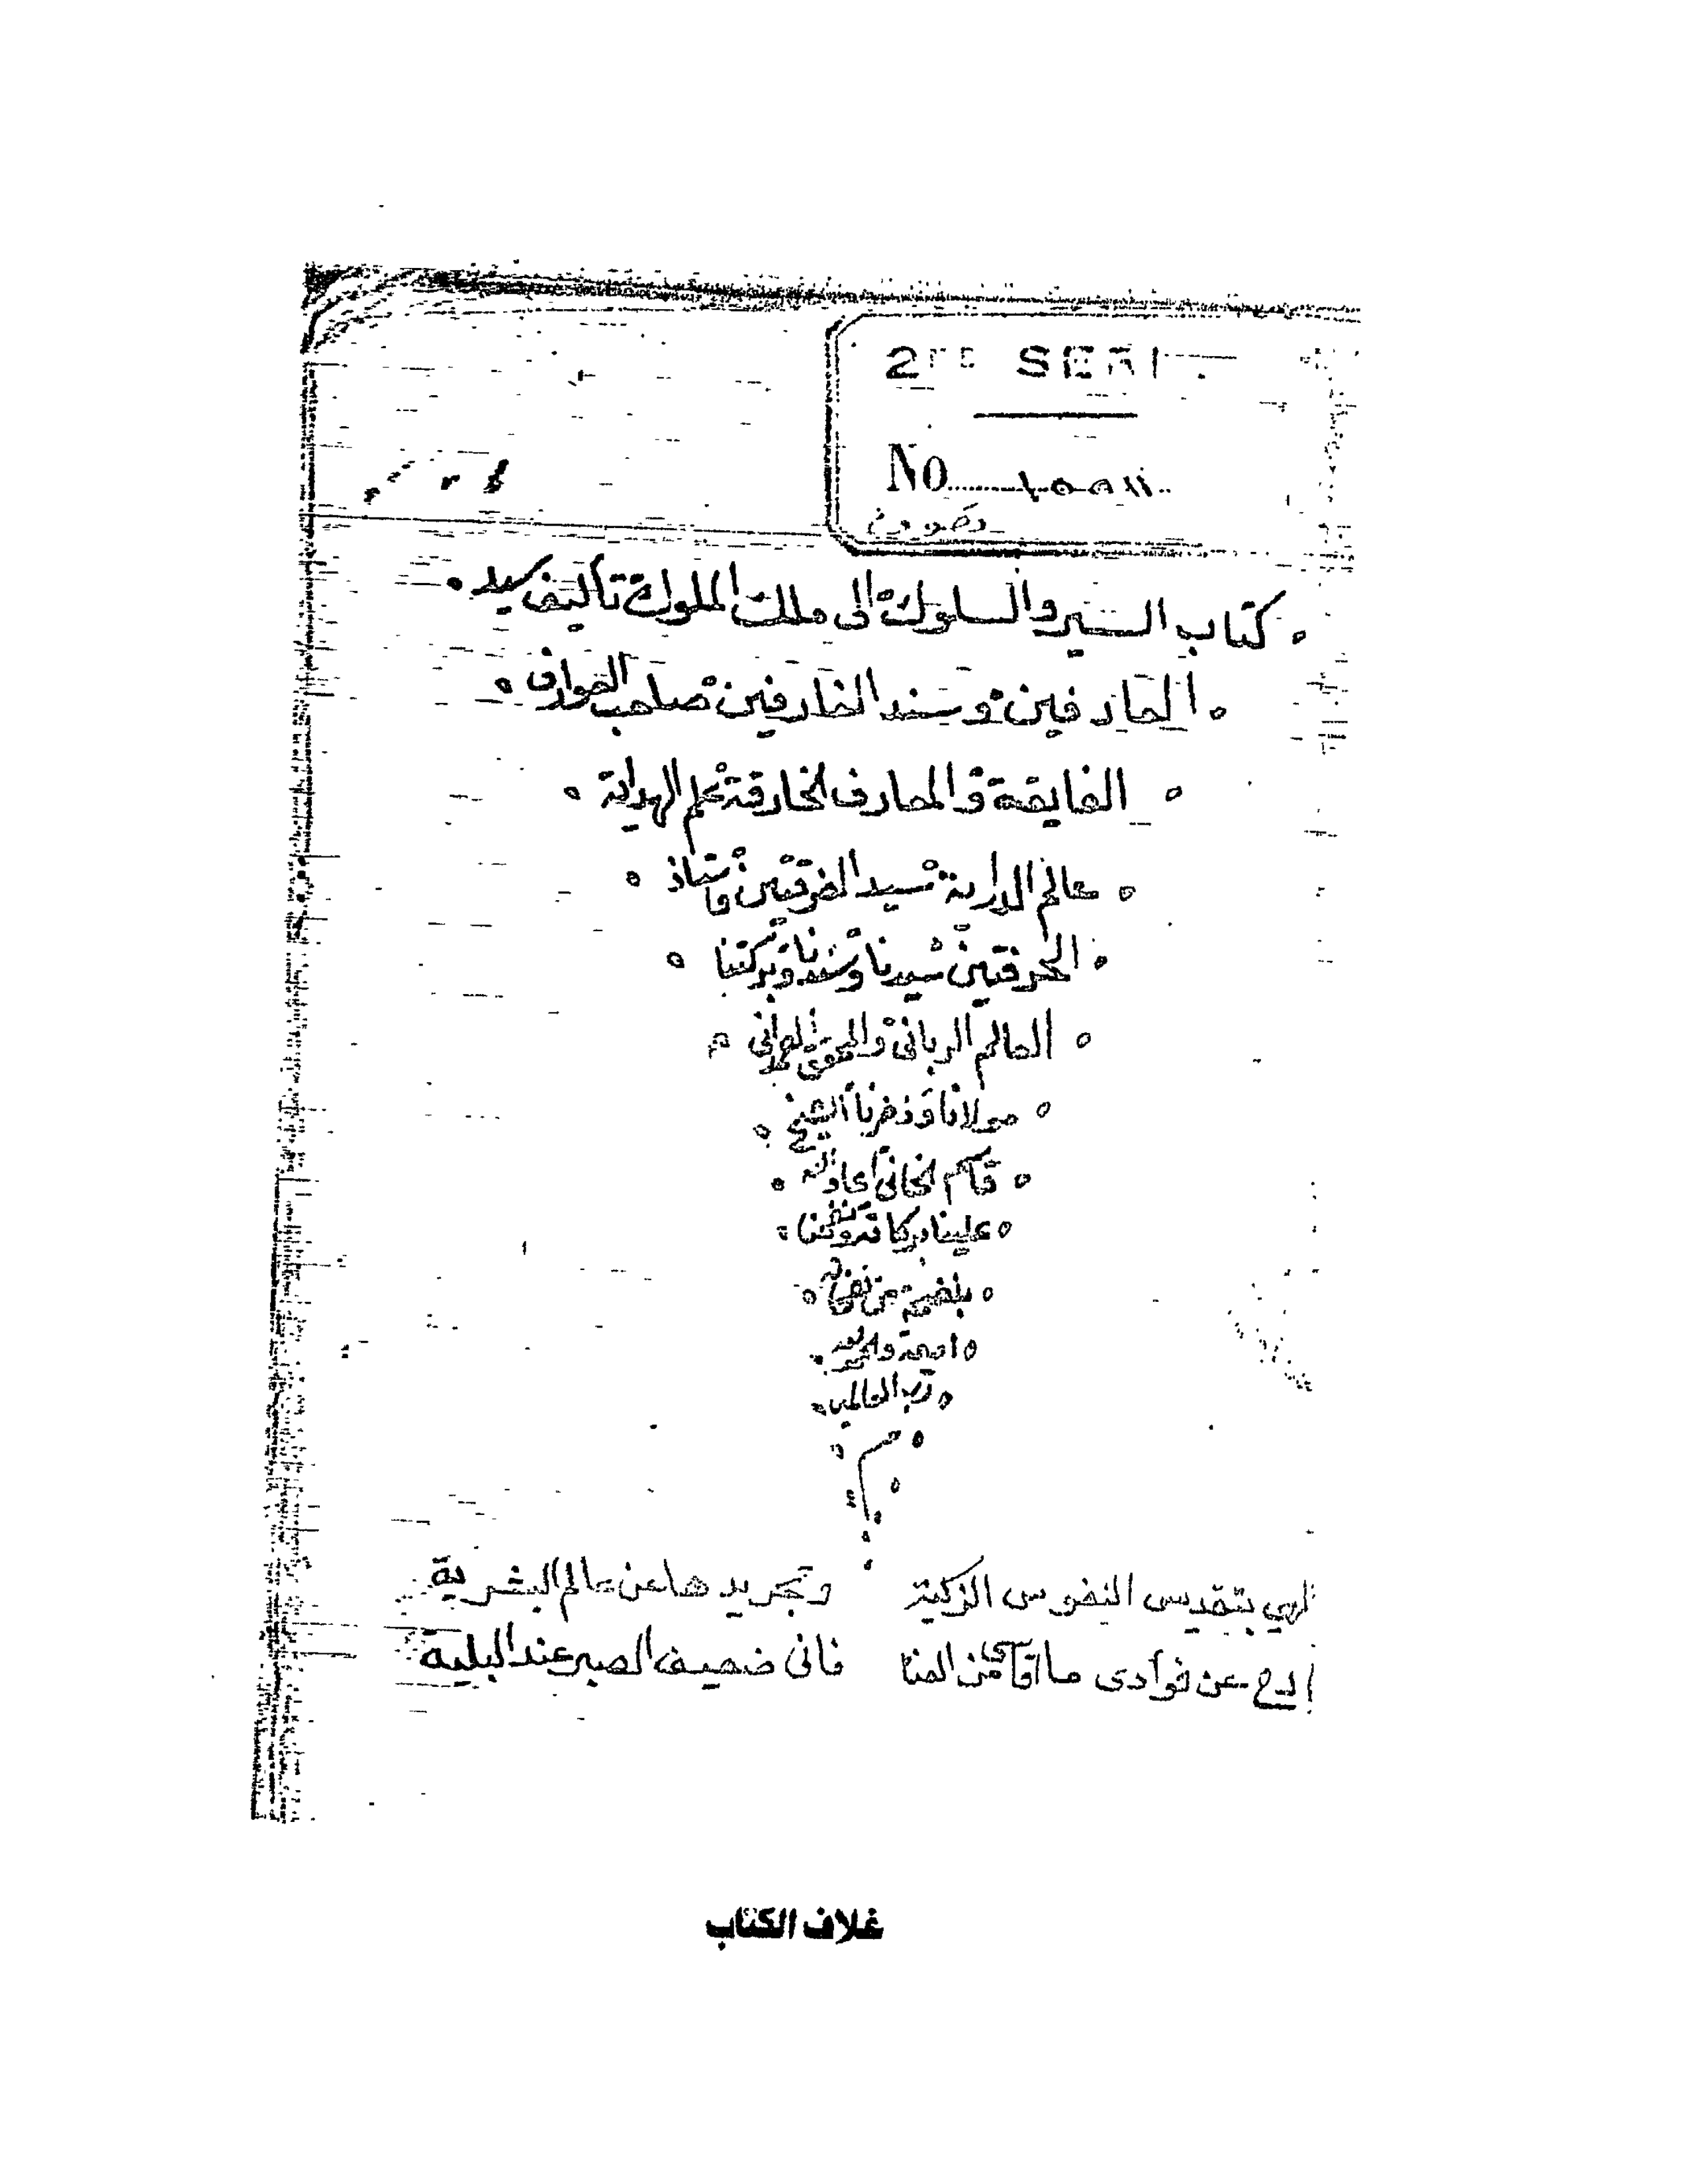 2ME SERI
No
تصوف
كتاب السير والسلوك الى ملك الملوك تأليف سيد
العارفين وسند الغارفين صاحب العوارف
الفايقة والمعارف الخارقة علم الهداية
عالم الدراية سيد الفرقتين واستاذ
الحرقتين سيدنا وسندنا وبركتنا
العالم الربانى والمحقق الصمدانى
مولانا وذخرنا الشيخ
قاسم الخانى اعاد الله
علينا بركاته ونفحنا
بنفحة من نفحاته
امين والحمد لله
رب العالمين
م
الهي بتقديس النفوس الزكية وتجريدها عن عالم البشرية
ازح عن فوادى ما اقاسى من العنا فانى ضعيف الصبر عند البلية
غلاف الكتاب